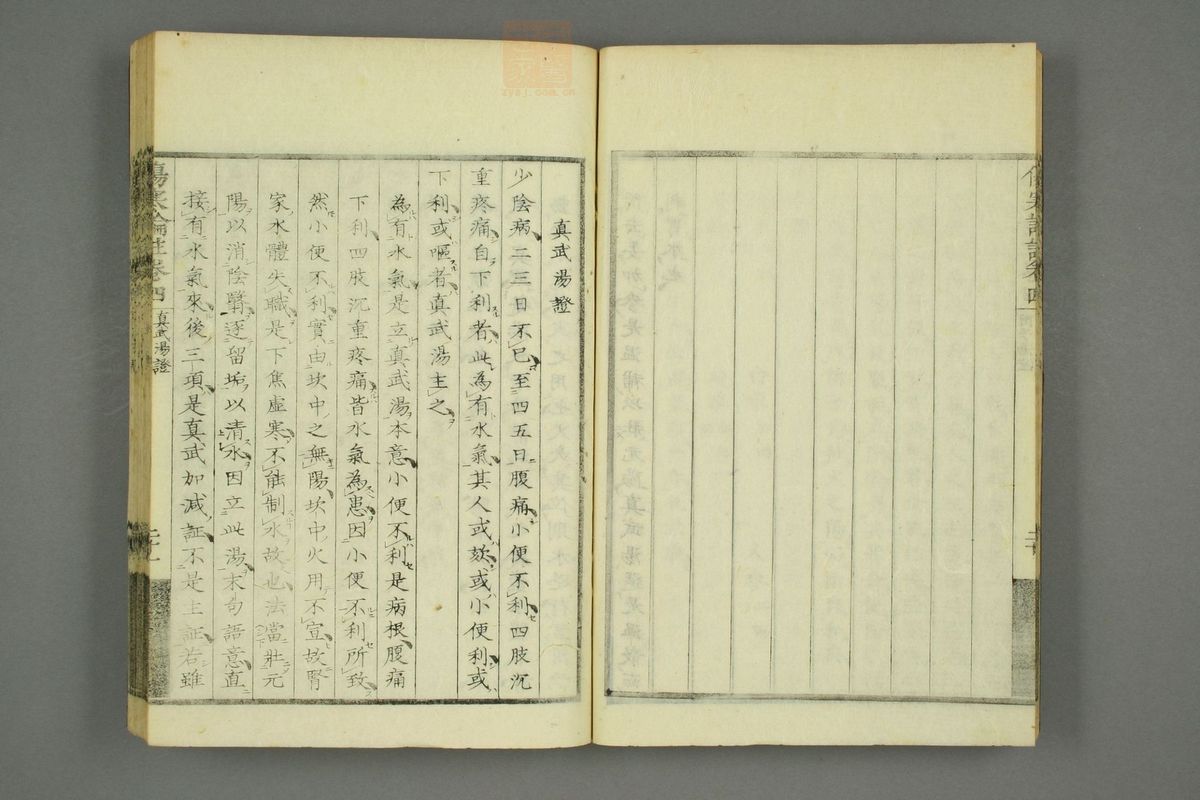 傷寒論註卷四
真武湯證
少陰病二三日不已至四五日腹痛小便不利四肢沉
重疼痛自下利者此為有水氣其人或欬或小便利或
下利或嘔者真武湯主之
為有水氣是立真武湯本意小便不利是病根腹痛
下利四肢沉重疼痛皆水氣為患因小便不利所致
然小便不利實由坎中之無陽坎中火用不宣故腎
家水體失職是下焦虛寒不能制水故也法當壯元
陽以消陰翳逐留垢以清水因立此湯末句語意直
接有水氣來後三項是真武加減証不是主証若雖
傷寒論註卷四
真武湯證
zysj.com.cn